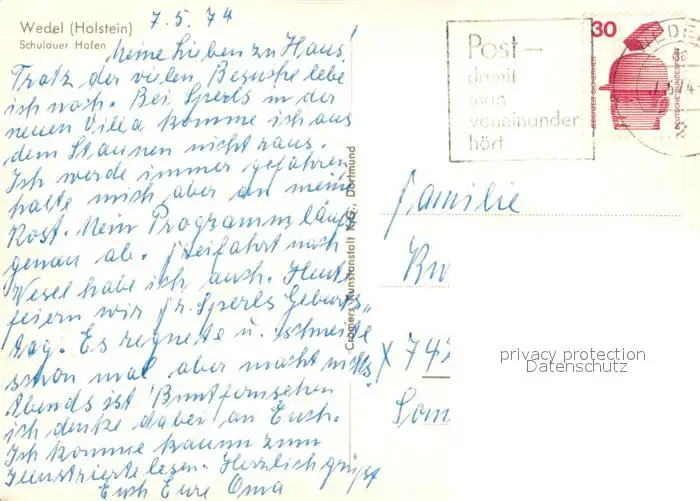 Wedel (Holstein)
Schulauer Hafen
7.5.74
Meine Lieben zu Haus!
Trotz der vielen Besuche lebe
ich noch. Bei Sperls in der
neuen Villa komme ich aus
dem Staunen nicht raus.
Ich werde immer gefahren
halte mich aber an meine
Kost. Mein Programm läuft
genau ab. Freifahrt nach
Wesel habe ich auch. Heute
feiern wir Fr. Sperls Geburts-
tag. Es regnete u. schneite
schon mal, aber macht nichts.
Abends ist Buntfernsehen
ich denke dabei an Euch.
Ich komme kaum zum
Illustrierte lesen. Herzlich grüßt
Euch Eure Oma
Cramers Kunstanstalt KG., Dortmund
Post-
damit
man
voneinander
hört
30
JEDERZEIT SICHERHEIT
DEUTSCHE BUNDESPOST
Familie
X 74
privacy protection
Datenschutz